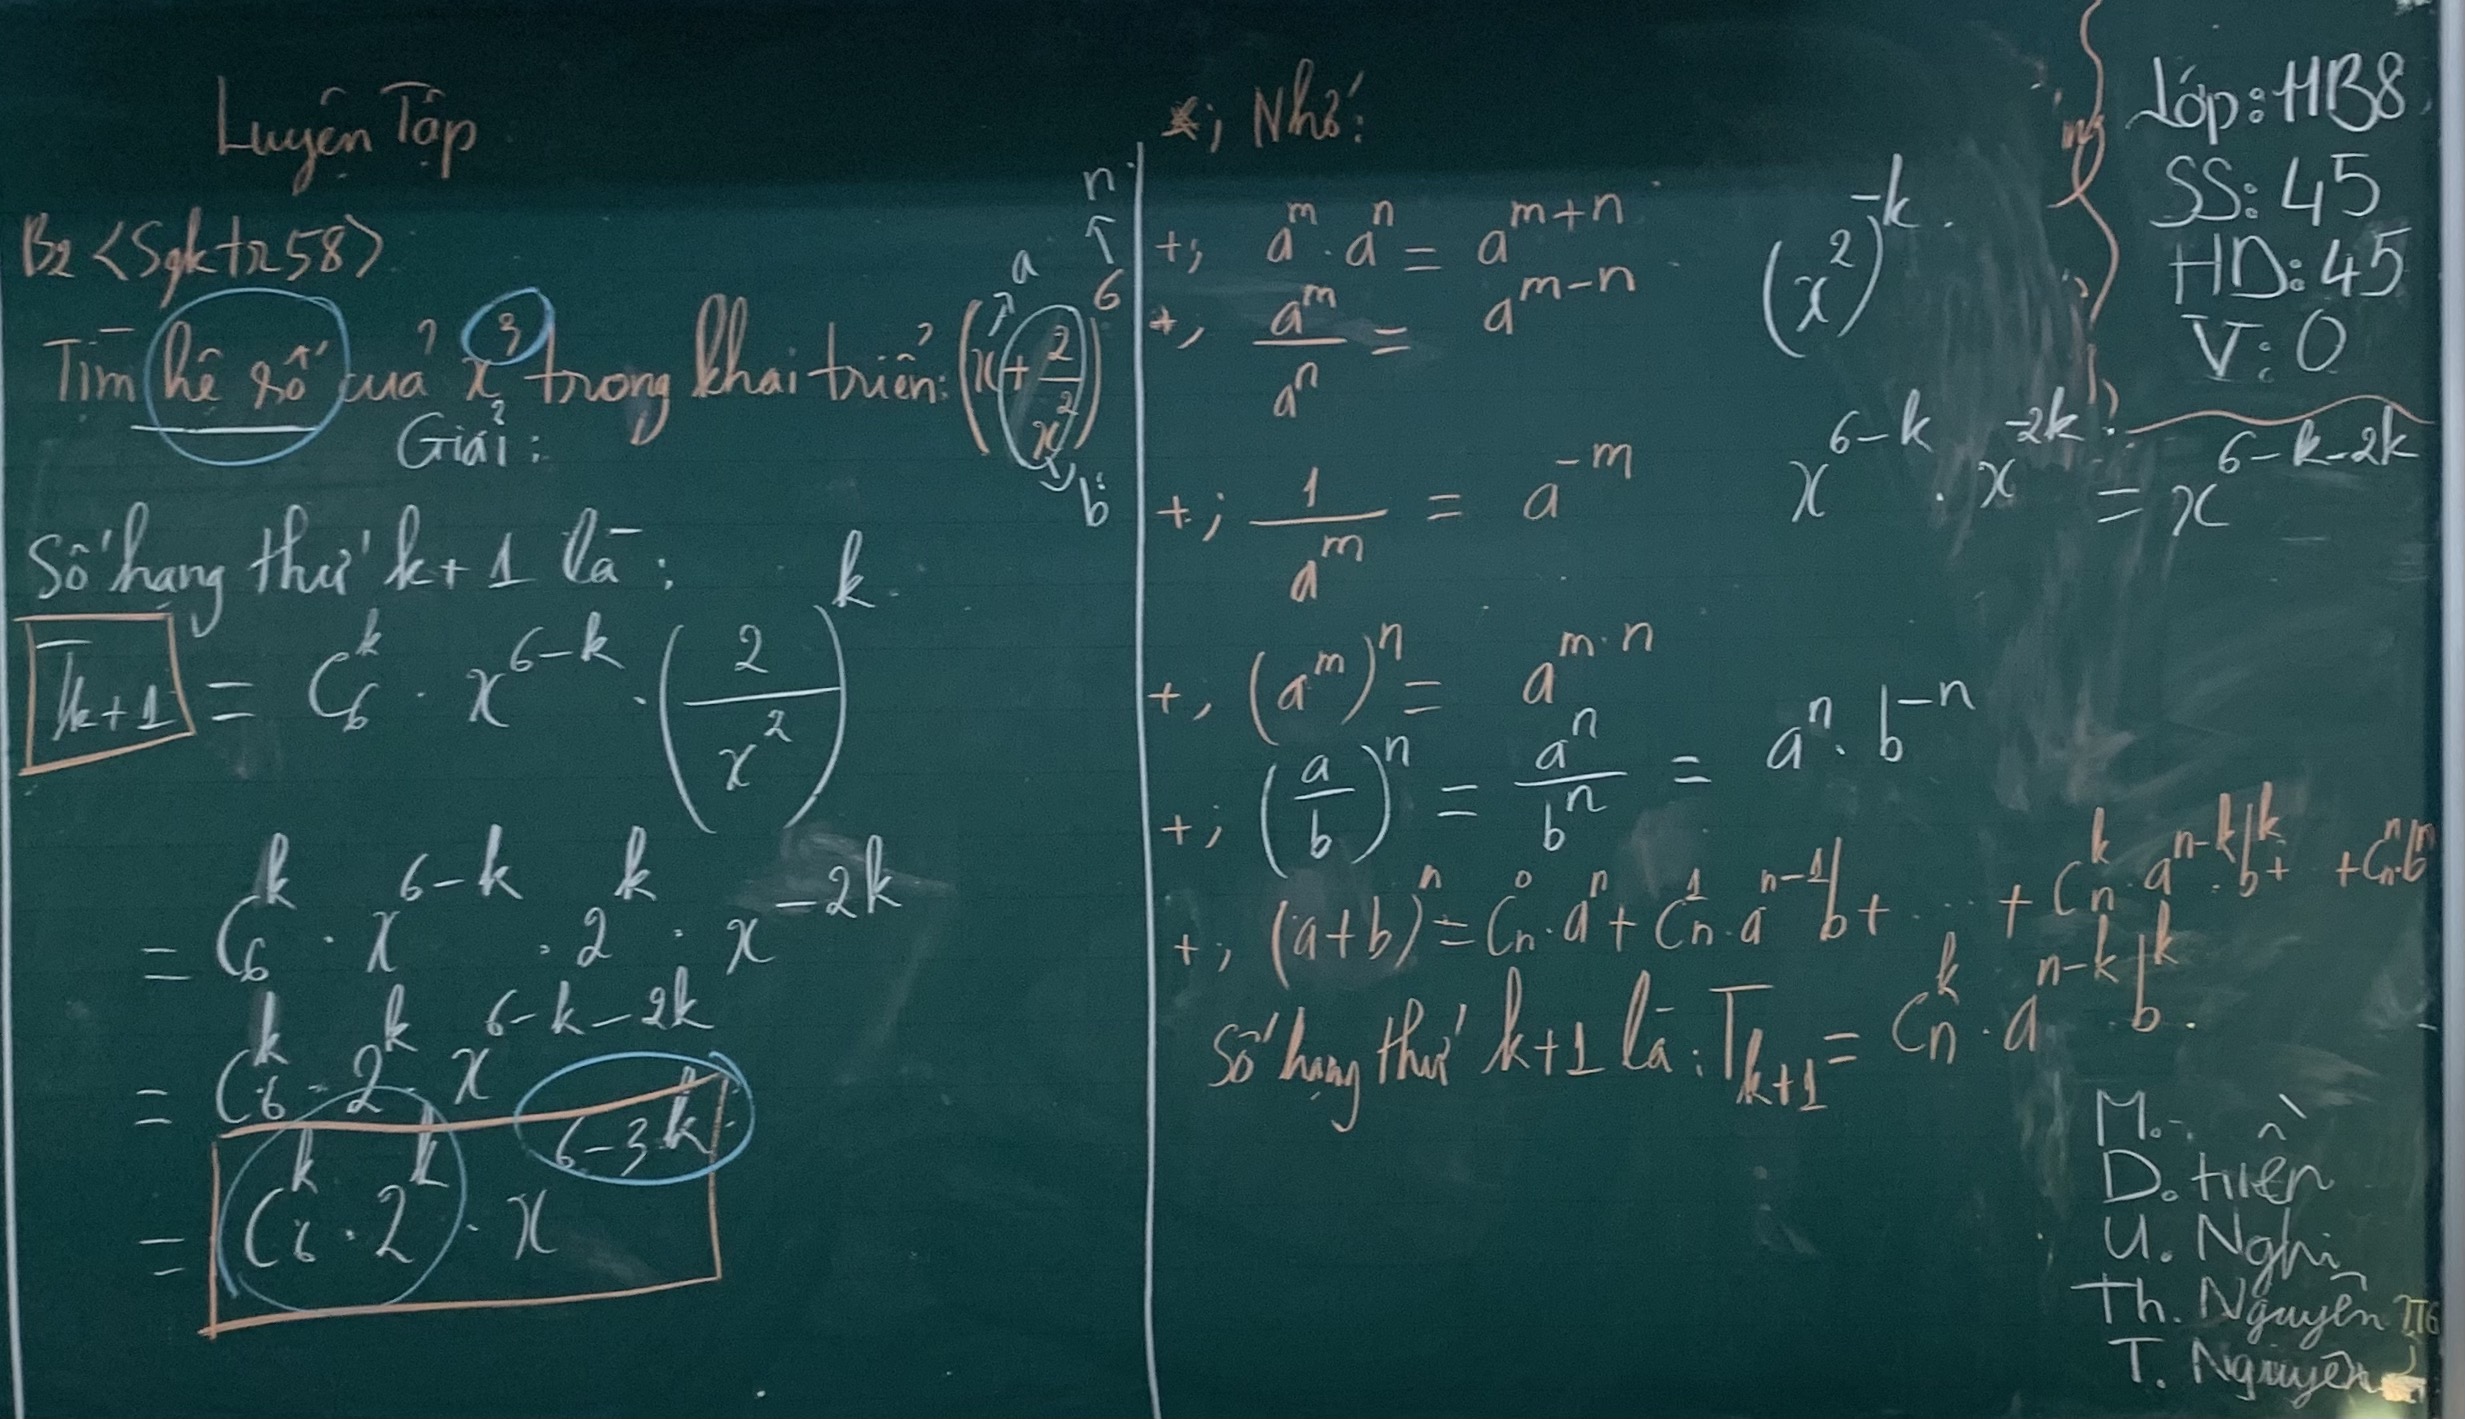 Luyện Tập
B2 <Sgk tr 58>
Tìm hệ số của x^3 trong khai triển: (x + 2/x^2)^6
a
n
b
Giải:
Số hạng thứ k+1 là:
T_{k+1} = C_6^k . x^{6-k} . (2/x^2)^k
= C_6^k . x^{6-k} . 2^k . x^{-2k}
= C_6^k . 2^k . x^{6-k-2k}
= C_6^k . 2^k . x^{6-3k}
*; Nhớ:
+; a^m . a^n = a^{m+n}
+, a^m/a^n = a^{m-n}
+; 1/a^m = a^{-m}
+, (a^m)^n = a^{m.n}
+; (a/b)^n = a^n/b^n = a^n . b^{-n}
+, (a+b)^n = C_n^0 . a^n + C_n^1 . a^{n-1} b + ... + C_n^k . a^{n-k} . b^k + + C_n^n . b^n
Số hạng thứ k+1 là: T_{k+1} = C_n^k . a^{n-k} . b^k.
(x^2)^{-k}.
x^{6-k} . x^{-2k} = x^{6-k-2k}
Lớp: 11B8
SS: 45
HD: 45
V: 0
M.
D. tiền
U. Nghi
Th. Nguyên
T. Nguyên